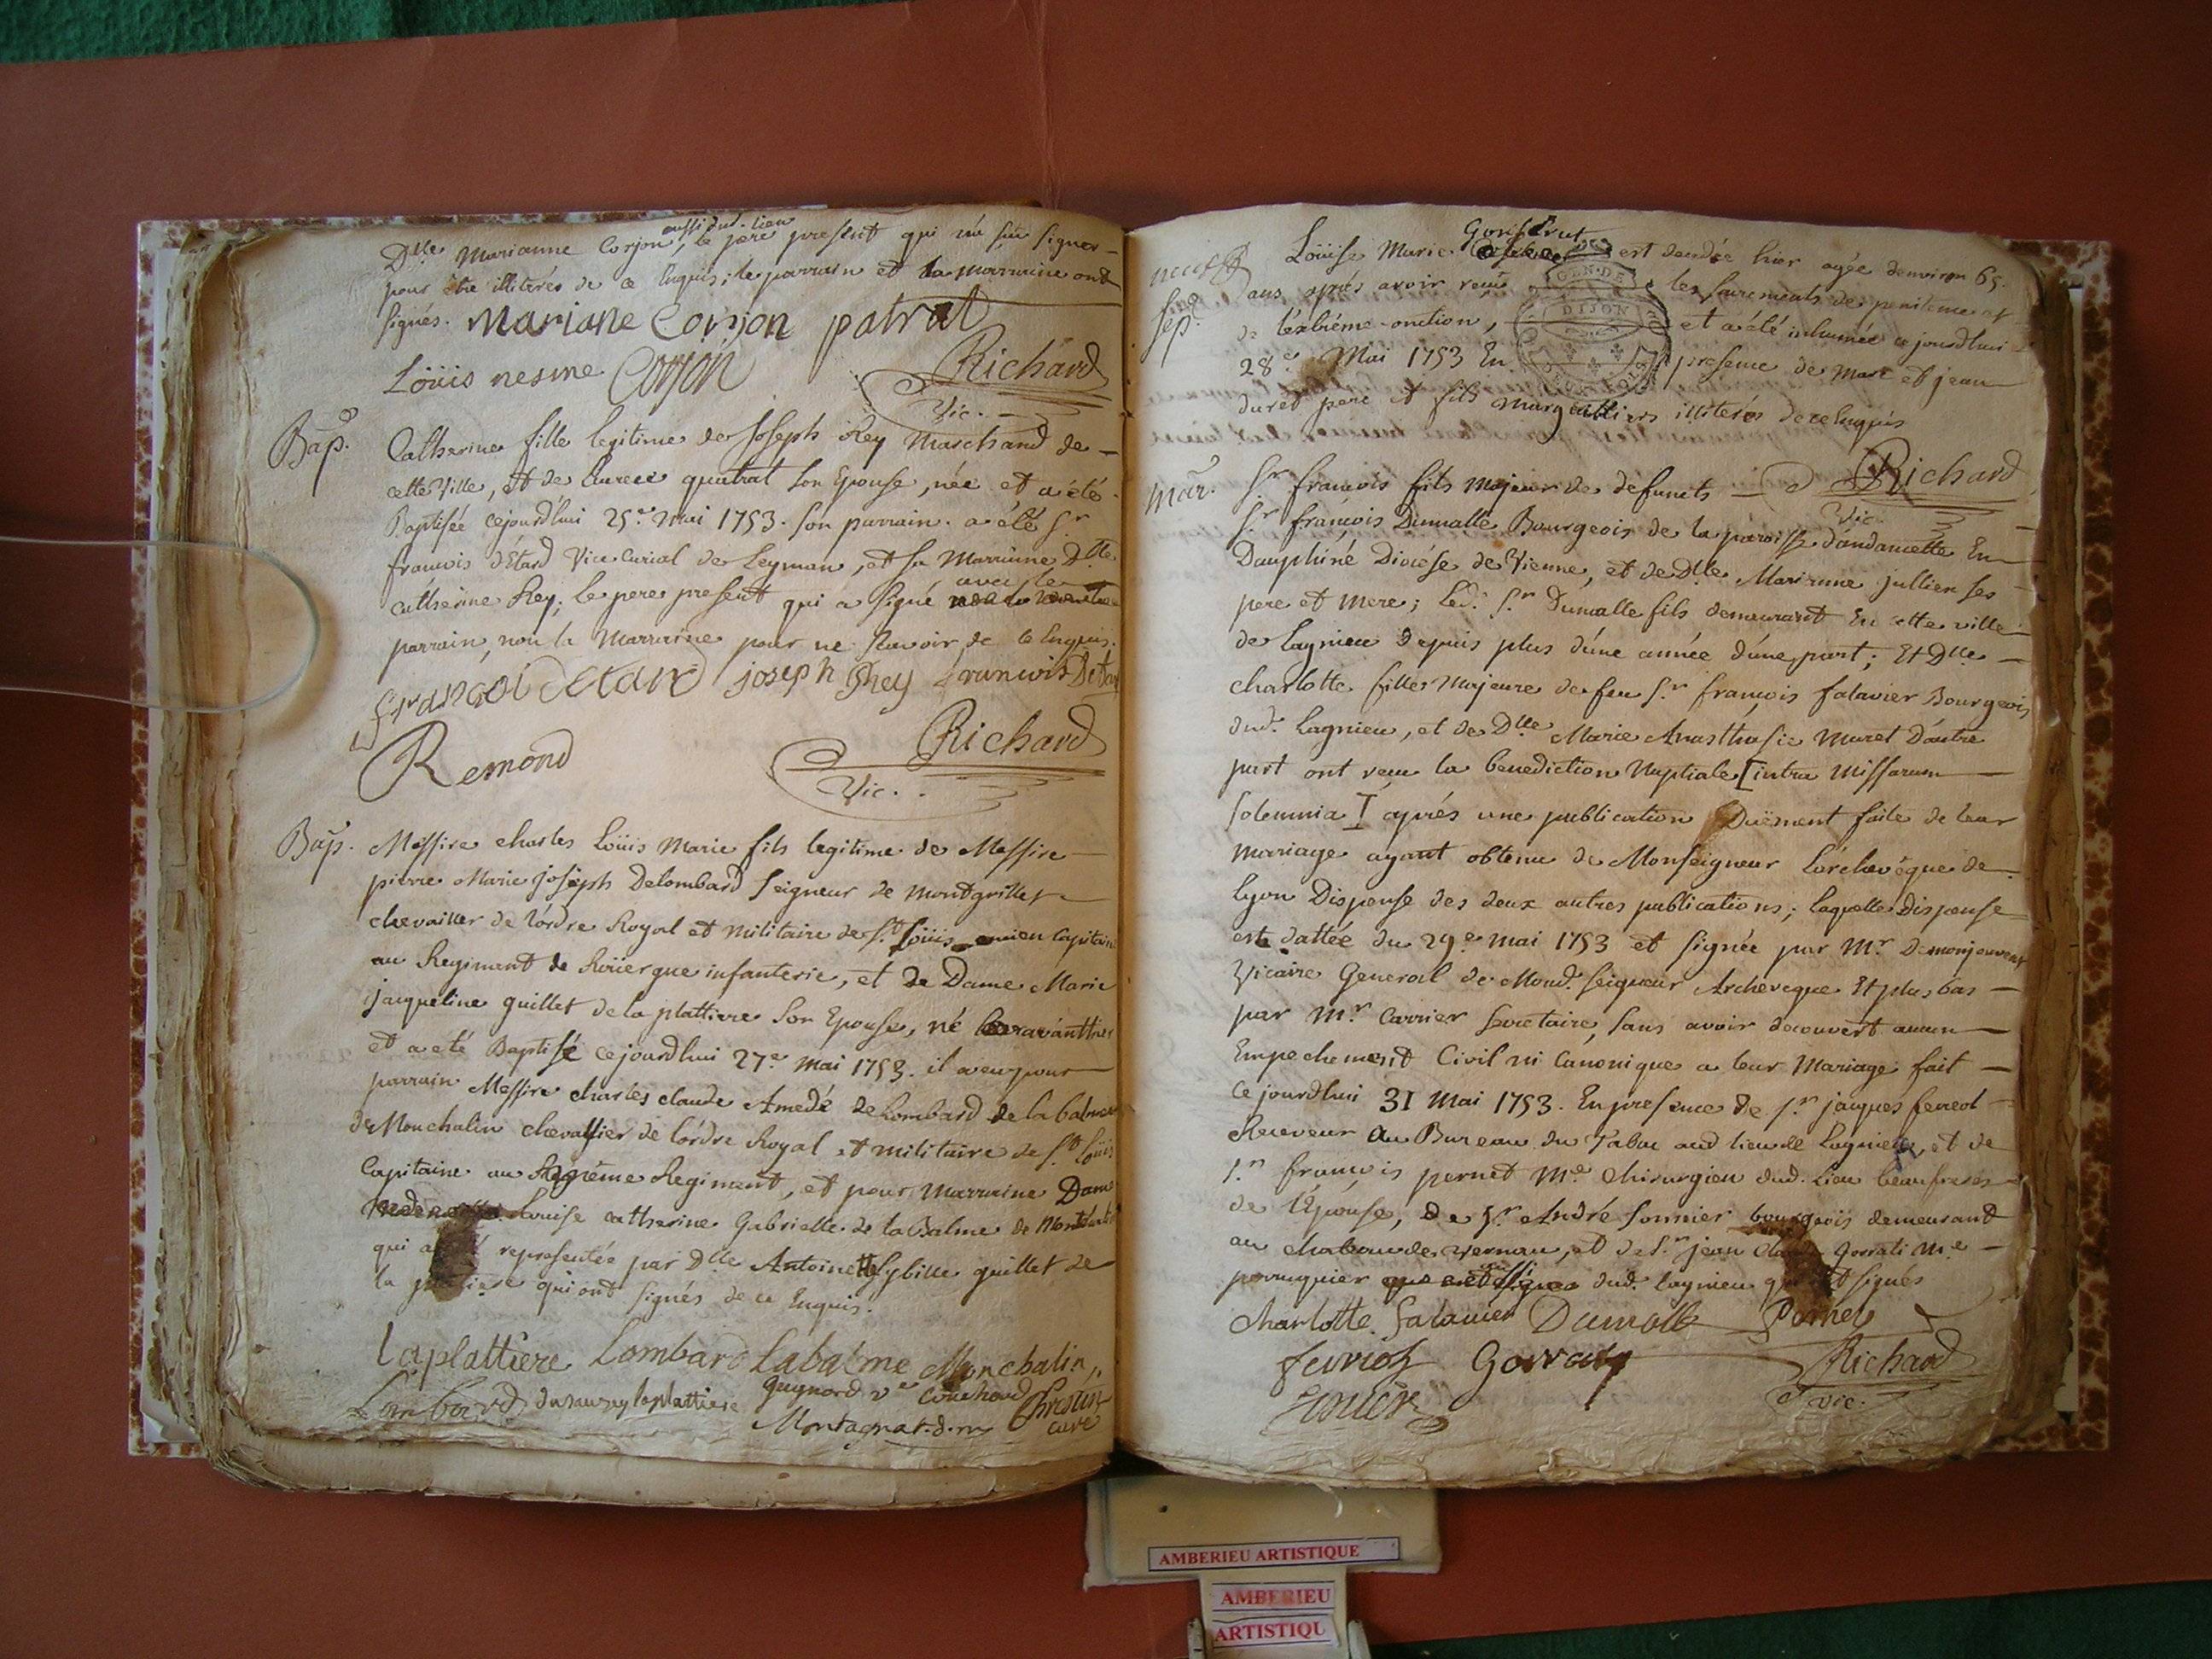 aussi dud. lieu
Dlle Marianne Corjon, le pere present qui n'a sçu signer
pour être illiterés de ce Enquis; le parrain et la marraine ont
signés. Mariane Corjon patrat
Loüis nesme Corjon Richard
Vic.
Bap. Catherine fille legitime de Joseph Rey Marchand de
cette Ville, et de quatrat son Epouse, née et a été
Baptisée cejourd'hui 25.e Mai 1753. son parrain a été Sr
francois d'Etard Vice curial de Leyman, et sa Marraine Dlle
avec le
catherine Rey; le pere present qui a signé
parrain, non la Marraine pour ne sçavoir de ce Enquis.
françoi detard joseph Rey francois Detard
Remond Richard
Vic.
Bap. Messire charles Loüis Marie fils legitime de Messire
pierre Marie Joseph Delombard Seigneur de Montgrillet
chevailler de l'ordre Royal et Militaire de St. Loüis ancien Capitaine
au Regiment de Roüergue infanterie, et de Dame Marie
jacqueline guillet de la plattiere son Epouse, né avanthier
et a eté Baptisé cejourdhui 27.e Mai 1753. il a eu pour
parrain Messire charles claude Amedé de Lombard de la balme
de Monchalin chevallier de lordre Royal et militaire de St. Loüis
Capitaine au Regiment, et pour Marraine Dame
Louise catherine Gabrielle de la Balme de
qui a representée par Dlle Antoinette Sybille guillet de
la qui ont signés de ce Enquis.
Laplattiere Lombard Labalme Monchalin
Lombard dusauzey laplattiere guynard ve Couchoud Chrestin
Montagnat. d. m curé
Gonsetrut
Sep. Loüise Marie est decedée hier agée denviron 65.
ans, après avoir reçu les sacrements de penitence et
de lextrême-onction, et a été inhumée ce jourd'hui
28.e Mai 1753 En presence de Marc et jean
duret pere et fils marguilliers illiterés de ce Enquis
GEN. DE
DIJON
Richard
Vic.
Mar. Sr francois fils Majeur de defunets
Sr. françois Dumalle Bourgeois de la paroisse dandancette En
Dauphiné Diocése de Vienne, et de Dlle Marianne jullien ses
pere et mere; led. Sr Dumalle fils demeurant En cette ville
de Lagnieu Depuis plus d'une année d'une part; Et Dlle
charlotte fille Majeure de feu Sr françois falavier Bourgeois
dud. Lagnieu, et de Dlle Marie Anasthasie Muret D'autre
part ont reçu la benediction Nuptiale [intra Missarum
Solemnia] après une publication Duëment faite de leur
Mariage ayant obtenu de Monseigneur Lárchevêque de
Lyon Dispense des deux autres publications; laquelle Dispense
est dattée du 29.e mai 1753 et signée par Mr. Demonjouvent
Vicaire General de Mond. seigneur Archeveque Et plus bas
par Mr. Carrier Secretaire, sans avoir decouvert aucun
Empechement Civil ni Canonique a leur Mariage fait
Ce jourdhui 31 Mai 1753. En presence de Sr jaques ferreol
Receveur Au Bureau du Tabac aud lieu de Lagnieu, et de
Sr francois pernet Me. chirurgien dud. Lieu beaufrere
de l'Epouse, de Sr. André Sonnier bourgeois demeurant
au chateau de vernau, et de Sr. jean Claude Gorrati Me
perruquier dud. lagnieu qui ont signés
Charlotte falavier Dumalle Pernet
Gorraty Richard
vic.
AMBERIEU ARTISTIQUE
AMBERIEU
ARTISTIQU